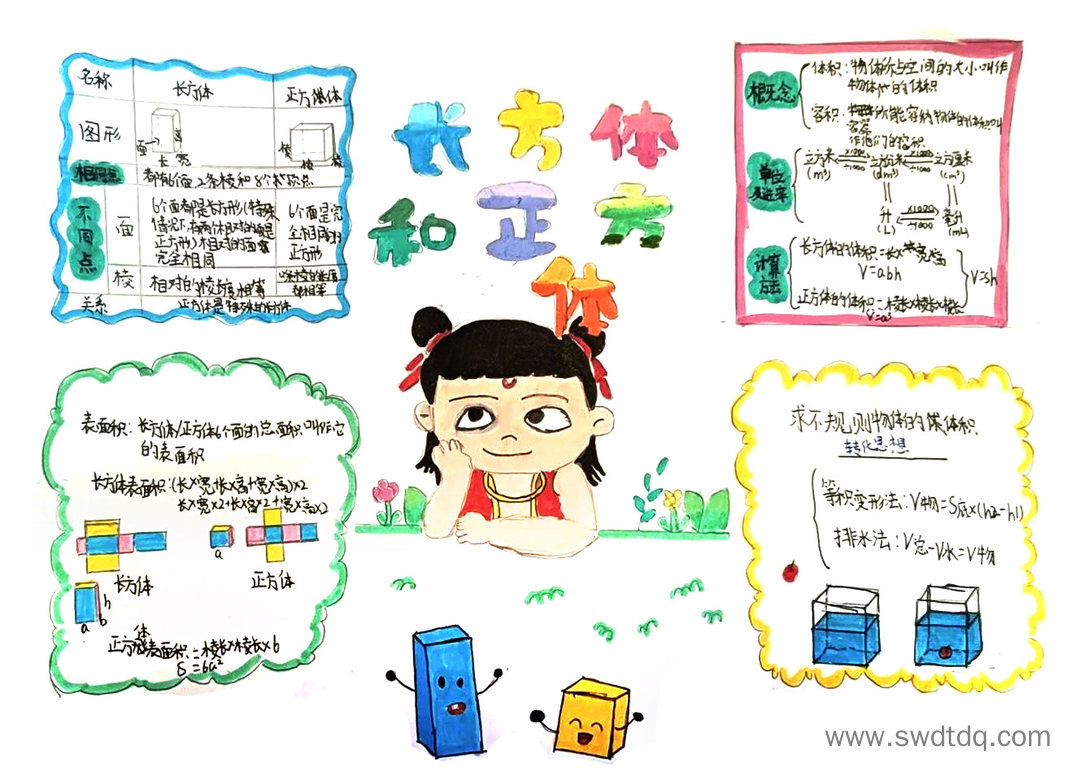 长方体
和正方
体
名称 长方体 正方体
图形
面 长 宽 高
棱 棱 棱
相同点 都有6个面,12条棱和8个顶点
不同点
面
6个面都是长方形(特殊
情况下,有两个相对的面是
正方形)相对的面
完全相同
6个面是完
全相同的
正方形
棱 相对的棱长度相等
12条棱的长度
都相等
关系 正方体是特殊的长方体
概念
体积:物体所占空间的大小叫作
物体的体积
容积:
所能容纳物体的体积叫
作他们的容积
单位
及进率
立方米 ×1000 ÷1000 立方分米 ×1000 ÷1000 立方厘米
(m³) (dm³) (cm³)
升 ×1000 ÷1000 毫升
(L) (mL)
计算
方法
长方体的体积=长×宽×高
V=abh
V=sh
正方体的体积=棱长×棱长×棱长
V=a³
表面积:长方体/正方体6个面的总面积叫作它
的表面积
长方体表面积:(长×宽+长×高+宽×高)×2
长×宽×2+长×高×2+宽×高×2
a
长方体 正方体
h
a b
正方体表面积=棱长×棱长×6
S=6a²
求不规则物体的体积
转化思想
等积变形法:V物=S底×(h2-h1)
排水法:V总-V水=V物
www.swdtdq.com